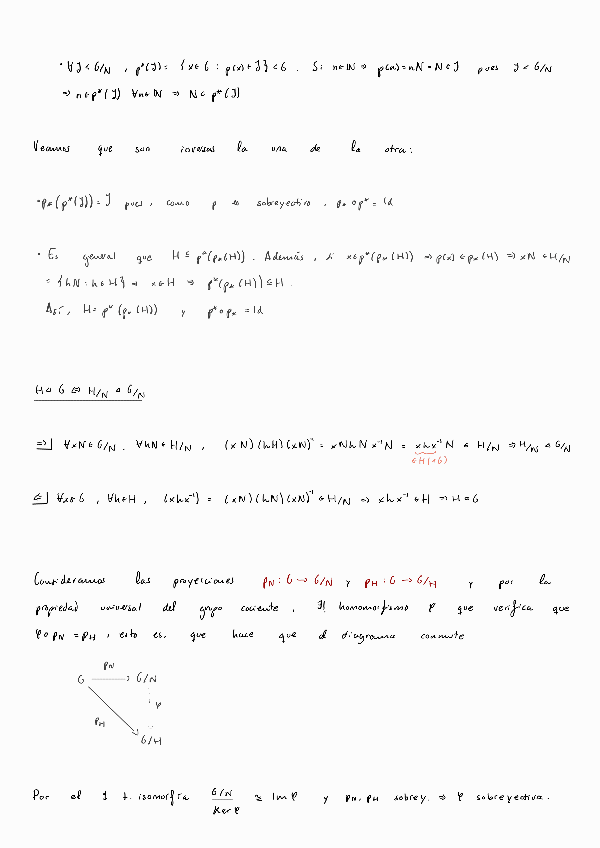 · ∀J < G/N , p*(J) = {x ∈ G : p(x) ∈ J} < G . Si n ∈ N ⇒ p(n) = nN = N ∈ J pues J < G/N
⇒ n ∈ p*(J) ∀n ∈ N ⇒ N ⊂ p*(J)
Veamos que son inversas la una de la otra:
· p*(p*(J)) = J pues, como p es sobreyectiva, p* ∘ p* = Id
· Es general que H ⊆ p*(p*(H)). Además, si x ∈ p*(p*(H)) ⇒ p(x) ∈ p*(H) ⇒ xN ∈ H/N
= {hN : h ∈ H} ⇒ x ∈ H ⇒ p*(p*(H)) ⊆ H.
Así, H = p*(p*(H)) y p* ∘ p* = Id
H ◁ G ⇔ H/N ◁ G/N
⇒] ∀xN ∈ G/N, ∀hN ∈ H/N, (xN)(hH)(xN)⁻¹ = xNhNx⁻¹N = xhx⁻¹N ∈ H/N ⇒ H/N ◁ G/N
∈H (◁G)
⇐] ∀x ∈ G, ∀h ∈ H, (xhx⁻¹) = (xN)(hN)(xN)⁻¹ ∈ H/N ⇒ xhx⁻¹ ∈ H ⇒ H ◁ G
Consideramos las proyecciones pN : G → G/N y pH : G → G/H y por la
propiedad universal del grupo cociente, ∃! homomorfismo φ que verifica que
φ ∘ pN = pH, esto es, que hace que el diagrama conmute
pN
G → G/N
φ
pH
G/H
Por el 1 t. isomorfía (G/N)/Ker φ ≅ Im φ y pN, pH sobrey. ⇒ φ sobreyectiva.